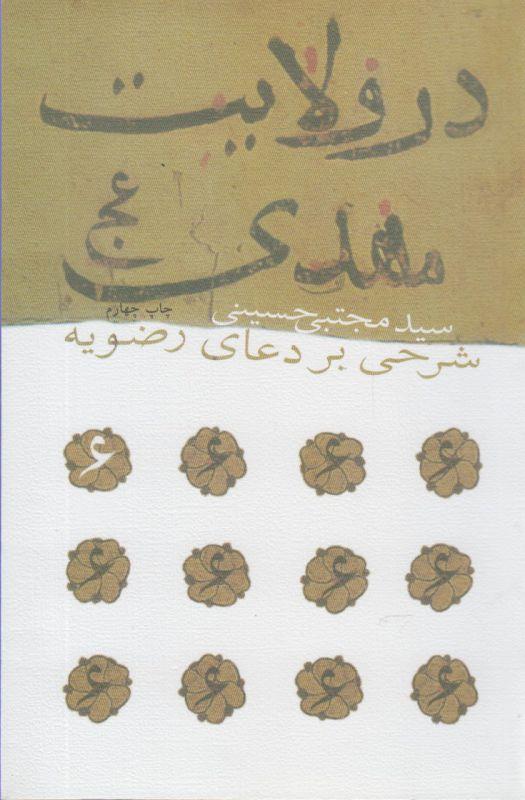 در ولایت
مهدی عج
چاپ چهارم
سید مجتبی حسینی
شرحی بر دعای رضویه
ع ع ع ع
ع ع ع ع
ع ع ع ع